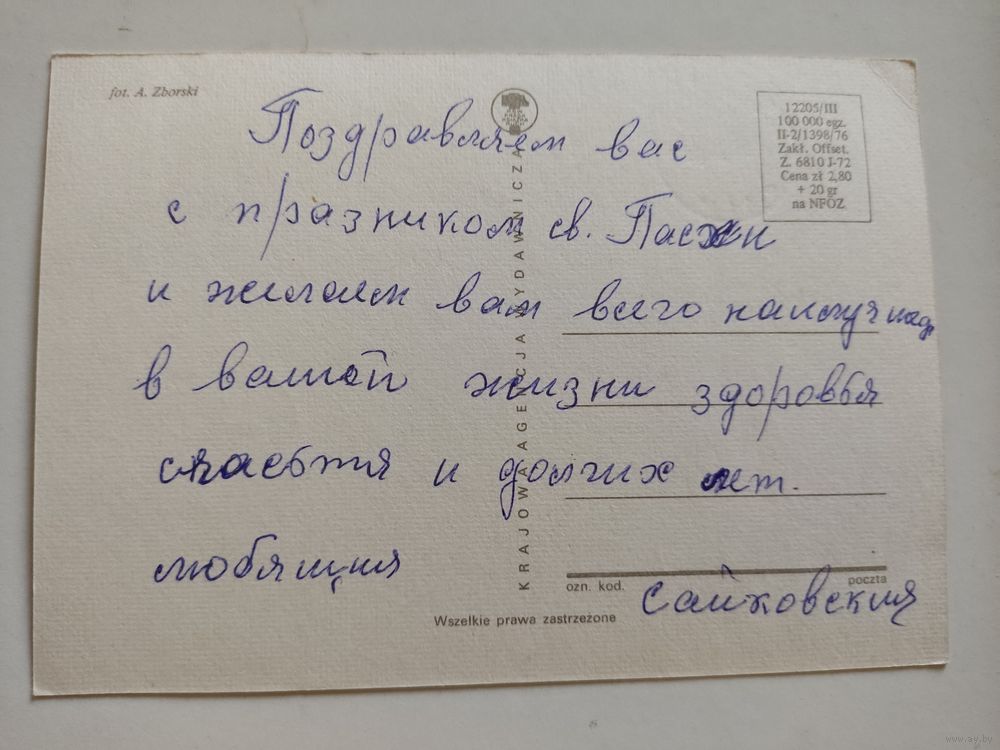 fot. A. Zborski
12205/III
100 000 egz.
II-2/1398/76
Zakł. Offset.
Z. 6810 J-72
Cena zł 2,80
+ 20 gr
na NFOZ
Поздравляем вас
с празником св. Пасхи
и желаем вам всего
в вашой жизни здоровья
счасьтя и долгих лет.
любящия
Сайковския
KRAJOWA AGENCJA WYDAWNICZA
ozn. kod. poczta
Wszelkie prawa zastrzeżone
www.ay.by